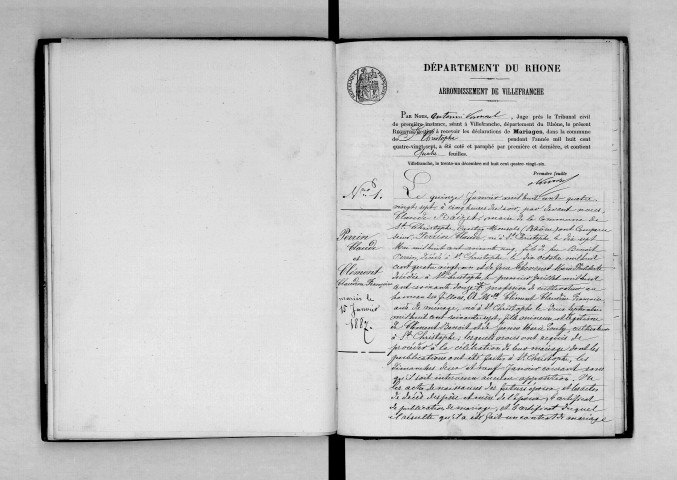 DÉPARTEMENT DU RHONE
ARRONDISSEMENT DE VILLEFRANCHE
PAR NOUS, Juge près le Tribunal civil
de première instance, séant à Villefranche, département du Rhône, le présent
Registre à recevoir les déclarations de Mariages, dans la commune
de St Christophe pendant l'année mil huit cent
quatre-vingt-sept, a été coté et paraphé par première et dernière, et contient
feuilles.
Villefranche, le trente-un décembre mil huit cent quatre-vingt-six.
Première feuille
No 1.
Perrin
Claude
et
Clément
Claudine Françoise
mariés le
15 Janvier
1887.
Le quinze Janvier mil huit cent quatre
vingt sept à cinq heures du soir, par devant nous
Claude maire de la commune de
St Christophe, Rhône, sont comparu
Perrin Claude, né à St Christophe le dix sept
Mai mil huit cent soixante cinq, fils de feu Benoit
Perrin décédé à St Christophe le dix octobre mil huit
cent quatre vingt un et de feue
décédée à St Christophe le premier Juillet mil huit
cent soixante douze, profession de cultivateur au
hameau des Filloux, Et Mlle Clément Claudine Françoise
sans de ménage, née à St Christophe le deux Septembre
mil huit cent soixante sept, fille mineure et légitime
de Clément Benoit et de Jeanne Marie cultivateurs
à St Christophe, lesquels nous ont requis de
procéder à la célébration de leur mariage dont les
publications ont été faites à St Christophe, les
dimanches deux et neuf Janvier courant sans
qu'il soit intervenu aucune opposition. Vu
les actes de naissances des futurs époux, et les actes
de décès des père et mère de l'époux, et certificat
de publication de mariage, et certificat duquel
il résulte qu'il a été fait un contrat de mariage